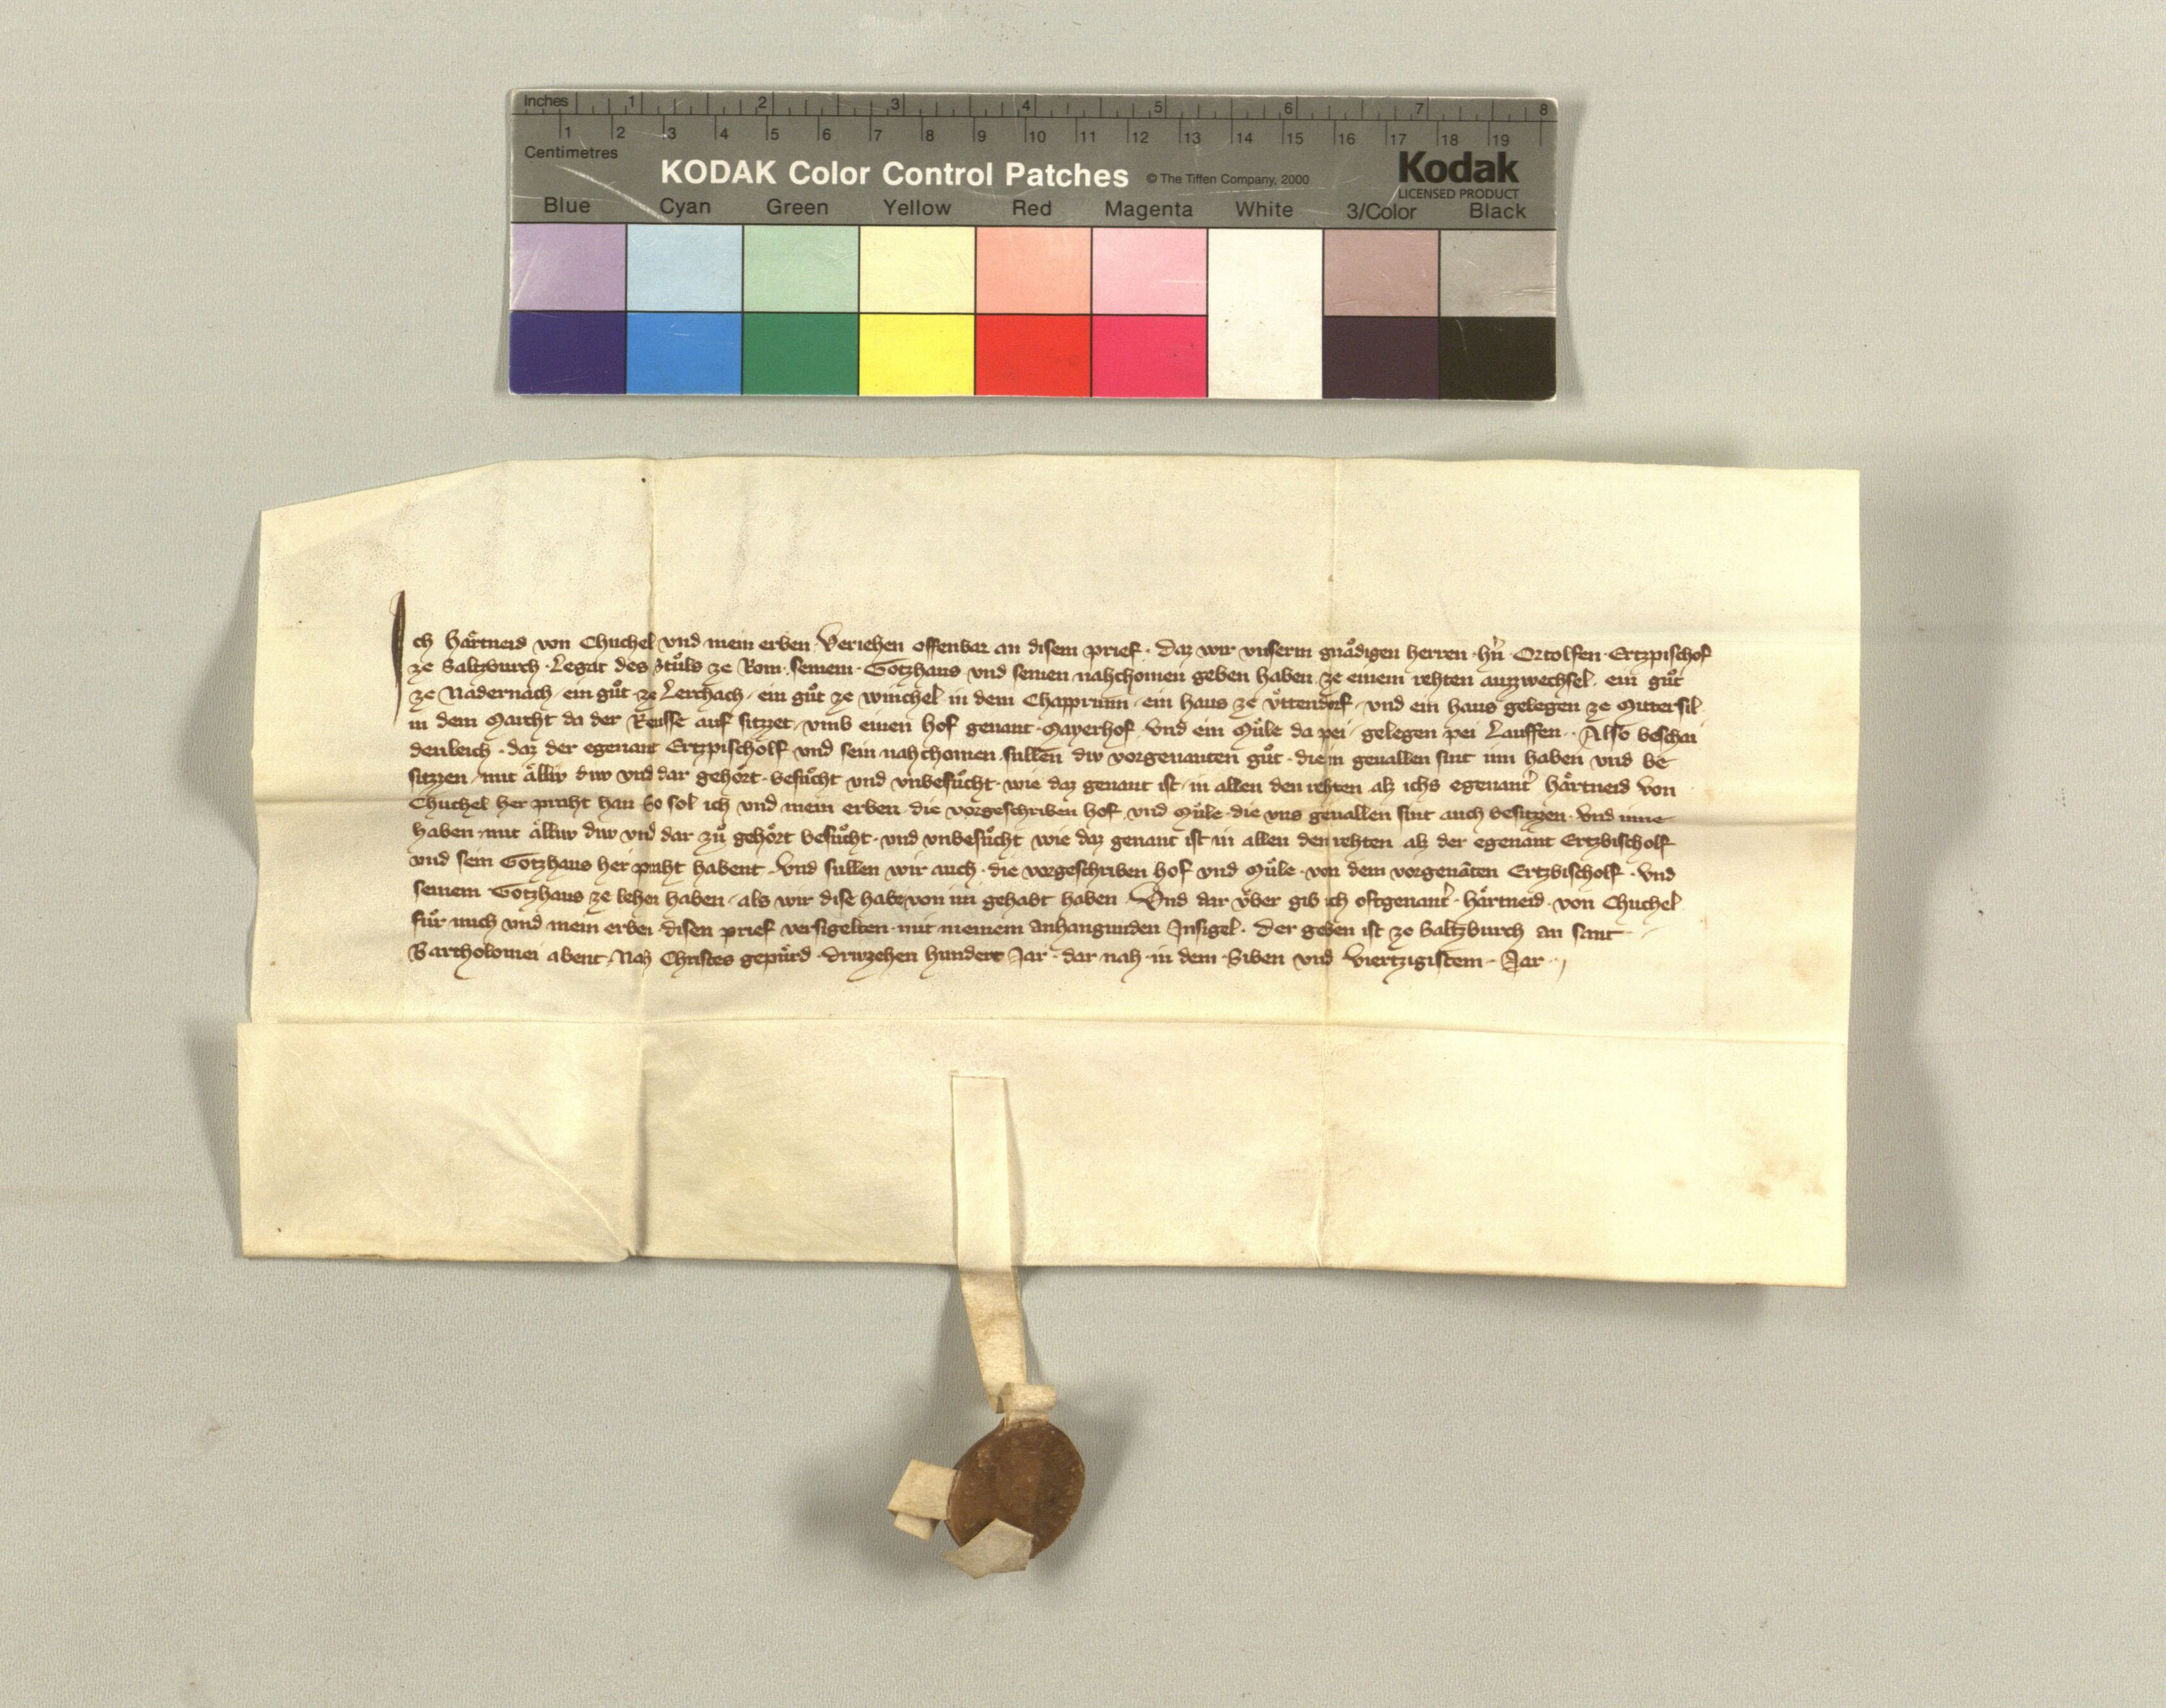 Inches 1 2 3 4 5 6 7 8
1 2 3 4 5 6 7 8 9 10 11 12 13 14 15 16 17 18 19
Centimetres
KODAK Color Control Patches © The Tiffen Company, 2000 Kodak
LICENSED PRODUCT
Blue Cyan Green Yellow Red Magenta White 3/Color Black
Ich Haͤrtneid von Chuchel vnd mein erben veriehen offenbar an disem prief · Daz wir vnserm gnaͤdigen herren · hrͤn · Ortolfen · Ertzpischof
ze Saltzburch · Legat des Stuͤls ze Rom · seinem · Gotzhaus vnd seinen nahchomen geben haben ze einem rehten auzwechsel · ein guͤt
ze Nadernach · ein guͤt ze Lerchach · ein guͤt ze winchel in dem Chapprunn · ein haus ze vͤttendorf · vnd ein haus gelegen ze Mittersil
in dem Marcht da der Reusse auf sitzet · vmb einen hof genant · Mayerhof · vnd ein Muͤle da pei · gelegen pei Lauffen · Also beschai
denleich · daz der egenant Ertzpischolf vnd sein nahchomen sullen div vorgenanten guͤt · die in geuallen sint inn haben vnd be
sitzzen · mit aͤlliv div vnd dar gehoͤrt · besuͤcht vnd vnbesuͤcht · wie daz genant ist · in allen den rehten als ichs egenant haͤrtneid von
Chuchel her praht han So sol ich vnd mein erben · die vorgeschriben hof vnd Muͤle · die vns geuallen sint auch besitzen · vnd inne
haben · mit aͤlliv div vnd dar zuͤ gehoͤrt besuͤcht · vnd vnbesuͤcht wie daz genant ist in allen den rehten als der egenant Ertzbischolf
vnd sein Gotzhaus her praht habent · Vnd sullen wir auch · die vorgeschriben hof vnd Muͤle · von dem vorgenāten Ertzbischolf · vnd
seinem Gotzhaus ze lehen haben · als wir dise habe von im gehabt haben · Vnd dar vͤber gib ich oftgenant · haͤrtneid · von Chuchel
fuͤr mich vnd mein erben disen prief versigelten mit meinem anhangunden Insigel · Der geben ist ze Saltzburch an sant
Bartholomei abent · Nah Christes gepuͤrd · driwzehen hundert Jar · dar nah in dem · Siben vnd Viertzigistem · Jar ·